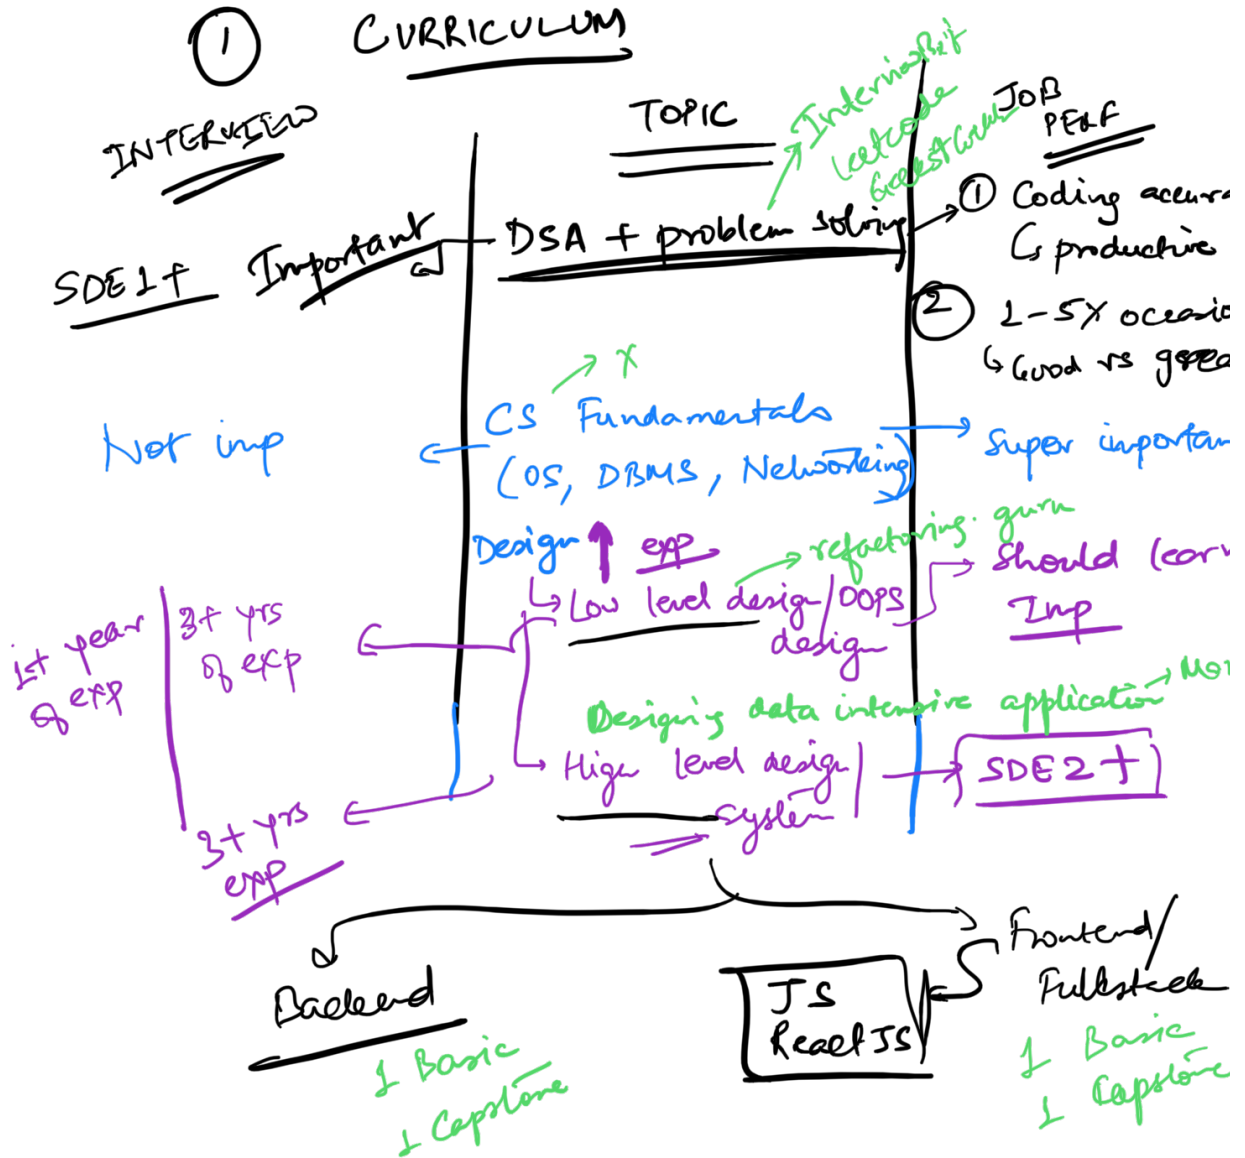 1 CURRICULUM
INTERVIEW
TOPIC
InterviewBit
leetcode
JOB
PERF
SDE1+ Important
DSA + problem solving
1 Coding accura
↳ productive
2 1-5X occasio
↳ Good vs grea
X
Not imp
CS Fundamentals
(OS, DBMS, Networking)
Super importan
Design
exp
refactoring.guru
↳ Low level design/OOPS
design
Should lear
Imp
1st year
of exp
3+ yrs
of exp
Designing data intensive application
Mor
High level design/
system
SDE2+
3+ yrs
exp
Backend
1 Basic
1 Capstone
JS
React JS
Frontend/
Fullstack
1 Basic
1 Capstone